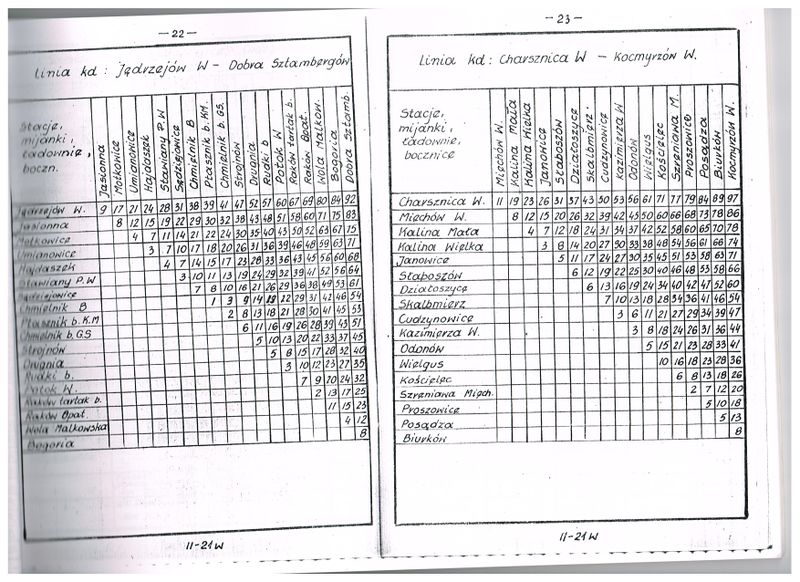 — 22 —
Linia kd : Jędrzejów W – Dobra Sztambergów
Stacje,
mijanki,
ładownie,
boczn.
Jasionna
Motkowice
Umianowice
Hajdaszek
Stawiany P.W
Sędziejowice
Chmielnik B
Ptasznik b. KM.
Chmielnik b. GS.
Strojnów
Drugnia
Rudki b
Potok W
Raków tartak b.
Raków Opat.
Wola Malkow.
Bogoria
Dobra Sztamb.
Jędrzejów W. 9 17 21 24 28 31 38 39 41 47 52 57 60 67 69 80 84 92
Jasionna 8 12 15 19 22 29 30 32 38 43 48 51 58 60 71 75 83
Motkowice 4 7 11 14 21 22 24 30 35 40 43 50 52 63 67 75
Umianowice 3 7 10 17 18 20 26 31 36 39 46 48 59 63 71
Hajdaszek 4 7 14 15 17 23 28 33 36 43 45 56 60 68
Stawiany P.W 3 10 11 13 19 24 29 32 39 41 52 56 64
Sędziejowice 7 8 10 16 21 26 29 36 38 49 53 61
Chmielnik B 1 3 9 14 19 22 29 31 42 46 54
Ptasznik b. K.M 2 8 13 18 21 28 30 41 45 53
Chmielnik b. G.S 6 11 16 19 26 28 39 43 51
Strojnów 5 10 13 20 22 33 37 45
Drugnia 5 8 15 17 28 32 40
Rudki b. 3 10 12 23 27 35
Potok W. 7 9 20 24 32
Raków tartak b. 2 13 17 25
Raków Opat. 11 15 23
Wola Malkowska 4 12
Bogoria 8
II-21w
— 23 —
Linia kd : Charsznica W – Kocmyrzów W.
Stacje,
mijanki,
ładownie,
bocznice
Miechów W.
Kalina Mała
Kalina Wielka
Janowice
Słaboszów
Działoszyce
Skalbmierz.
Cudzynowice
Kazimierza W
Odonów
Wielgus
Kościelec
Szreniawa M.
Proszowice
Posądza
Biurków
Kocmyrzów W.
Charsznica W. 11 19 23 26 31 37 43 50 53 56 61 71 77 79 84 89 97
Miechów W. 8 12 15 20 26 32 39 42 45 50 60 66 68 73 78 86
Kalina Mała 4 7 12 18 24 31 34 37 42 52 58 60 65 70 78
Kalina Wielka 3 8 14 20 27 30 33 38 48 54 56 61 66 74
Janowice 5 11 17 24 27 30 35 45 51 53 58 63 71
Słaboszów 6 12 19 22 25 30 40 46 48 53 58 66
Działoszyce 6 13 16 19 24 34 40 42 47 52 60
Skalbmierz 7 10 13 18 28 34 36 41 46 54
Cudzynowice 3 6 11 21 27 29 34 39 47
Kazimierza W. 3 8 18 24 26 31 36 44
Odonów 5 15 21 23 28 33 41
Wielgus 10 16 18 23 28 36
Kościelec 6 8 13 18 26
Szreniawa Miech. 2 7 12 20
Proszowice 5 10 18
Posądza 5 13
Biurków 8
II-21w